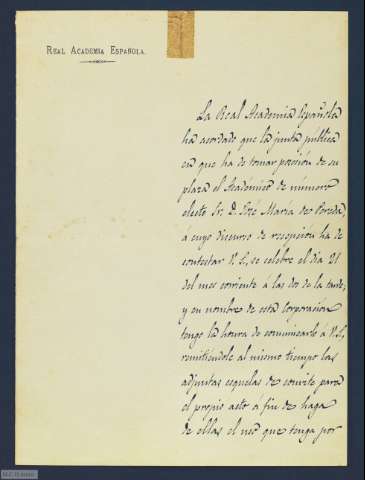 REAL ACADEMIA ESPAÑOLA.
La Real Academia Española
ha acordado que la junta pública
en que ha de tomar posesión de su
plaza el Académico de número
electo Sr. D. José María de Pereda,
á cuyo discurso de recepción ha de
contestar V. E., se celebre el día 21
del mes corriente á las dos de la tarde;
y en nombre de esta Corporación
tengo la honra de comunicarlo á V. E.,
remitiéndole al mismo tiempo las
adjuntas esquelas de convite para
el propio acto á fin de haga
de ellas el uso que tenga por